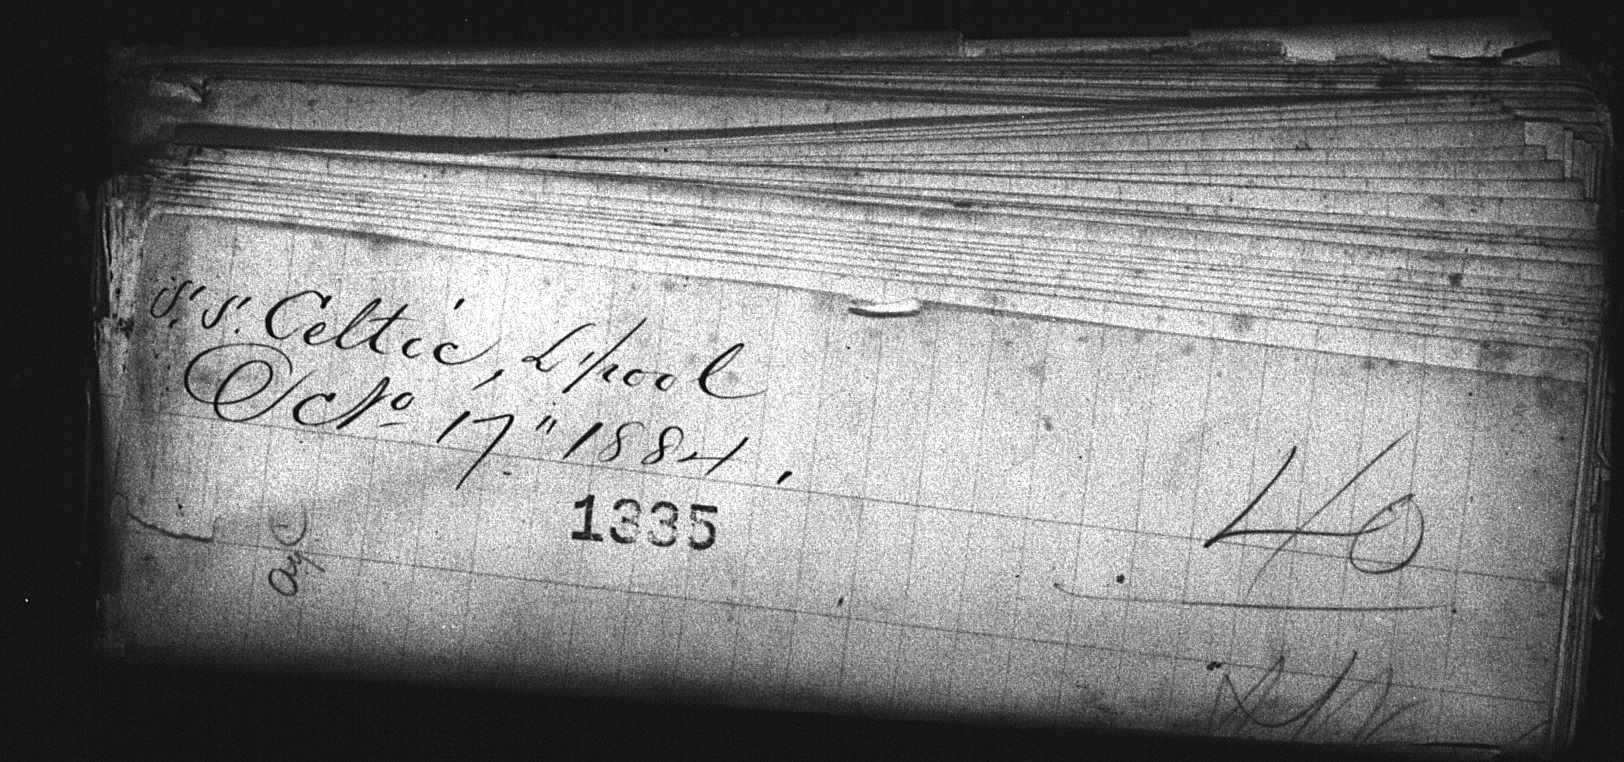 S.S. Celtic, L'pool
Octo 17" 1884,
1335
40